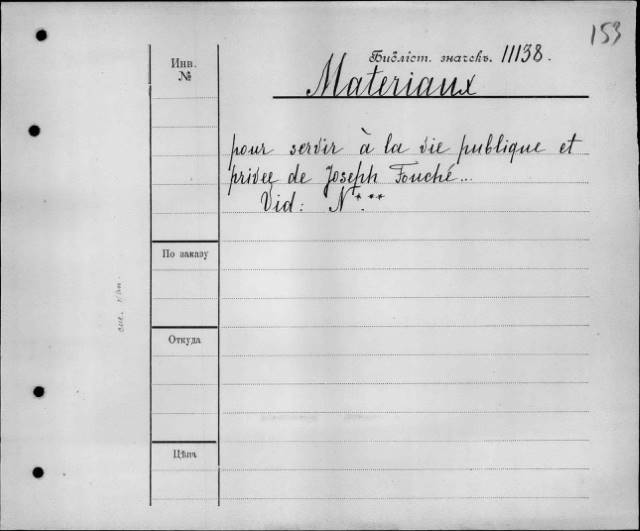 153
Инв. №
Библіот. значекъ. 11138.
Materiaux
pour servir à la vie publique et
priveé de Joseph Fouché...
Vid: N***
По заказу
Откуда
Цѣна